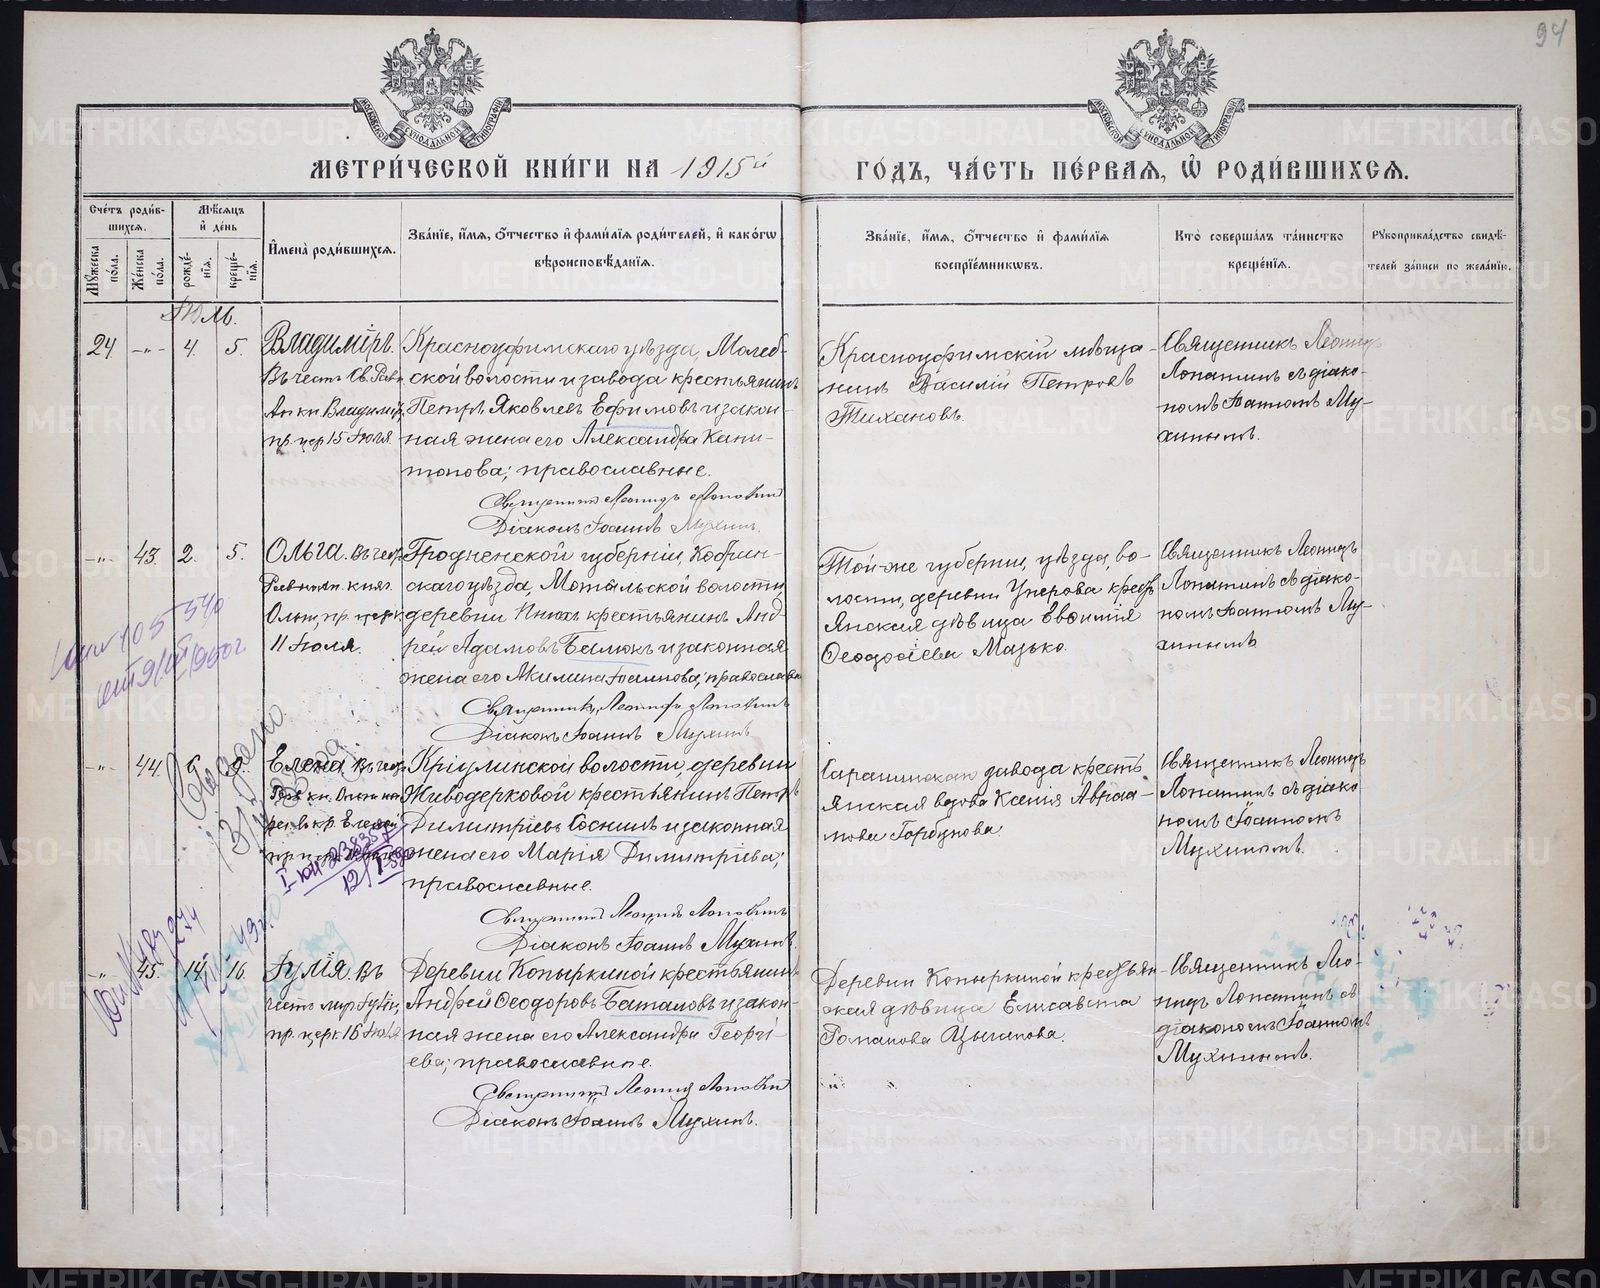 94
МЕТРИ́ЧЕСКОЙ КНИ́ГИ НА 1915й
ГО́ДЪ, ЧА́СТЬ ПЕ́РВАЯ, Ѡ РОДИ́ВШИХСЯ.
Сче́тъ роди́вшихся.
Му́жеска по́ла.
Же́нска по́ла.
Мѣ́сяцъ и де́нь
рожде́нїя.
креще́нїя.
Имена̀ роди́вшихся.
Зва́нїе, и́мя, о́тчество и фами́лїя роди́телей, и како́гѡ
вѣроисповѣ́данїя.
Зва́нїе, и́мя, о́тчество и фами́лїя
воспрїе́мникѡвъ.
Кто̀ соверша́лъ та́инство
креще́нїя.
Рукоприкла́дство свидѣ́-
телей за́писи по жела́нїю.
Іюль.
24 -„- 4. 5.
Владиміръ.
Въ честь Св. Равн
Ап. кн. Владимір,
пр. цер 15 Іюля.
Красноуфимскаго уѣзда, Молеб-
ской волости и завода крестьянинъ
Петръ Яковлевъ Ефимовъ и закон-
ная жена его Александра Капи-
тонова; православные.
Священникъ Леонидъ Лопатинъ
Діаконъ Іоаннъ Мухинъ.
Красноуфимскій мѣща-
нинъ Василій Петровъ
Тихановъ.
Священникъ Леонидъ
Лопатинъ съ діако-
номъ Іоанномъ Му-
хинымъ.
-„- 43. 2. 5.
Ольга. Въ чест
Равноап. княг.
Ольги, пр. церк.
11 Іюля.
Гродненской губерніи, Кобрин-
скаго уѣзда, Мотыльской волости,
деревни крестьянинъ Анд-
рей Адамовъ и законная
жена его Акилина Іосипова; православн
Священникъ Леонидъ Лопатинъ
Діаконъ Іоаннъ Мухинъ
Той-же губерніи, уѣзда, во-
лости, деревни крестьь
янская дѣвица Евѳимія
Ѳеодосіева Мазько.
Священникъ Леонидъ
Лопатинъ съ діако-
номъ Іоанномъ Му-
хинымъ
-„- 44. 6. 9.
Елена. Въ чест
Кріулинской волости, деревни
Живодерковой крестьянинъ Петръ
Димитріевъ Соснинъ и законная
жена его Марія Димитріева;
православные.
Священникъ Леонидъ Лопатинъ
Діаконъ Іоаннъ Мухинъ.
Саранинскаго завода кресть
янская вдова Ксенія Авраа-
мова Горбунова.
Священникъ Леонидъ
Лопатинъ съ діако
номъ Іоанномъ
Мухинымъ.
-„- 45. 14. 16.
Іулія. Въ
честь муч. Іуліи,
пр. церк. 16 Іюля
Деревни Копыркиной крестьянинъ
Андрей Ѳеодоровъ Баталовъ и закон-
ная жена его Александра Георгі-
ева; православные.
Священникъ Леонидъ Лопатинъ
Діаконъ Іоаннъ Мухинъ.
Деревни Копыркиной крестьян-
ская дѣвица Елисавета
Романова Цыганова.
Священникъ Лео-
нидъ Лопатинъ съ
діакономъ Іоанномъ
Мухинымъ.